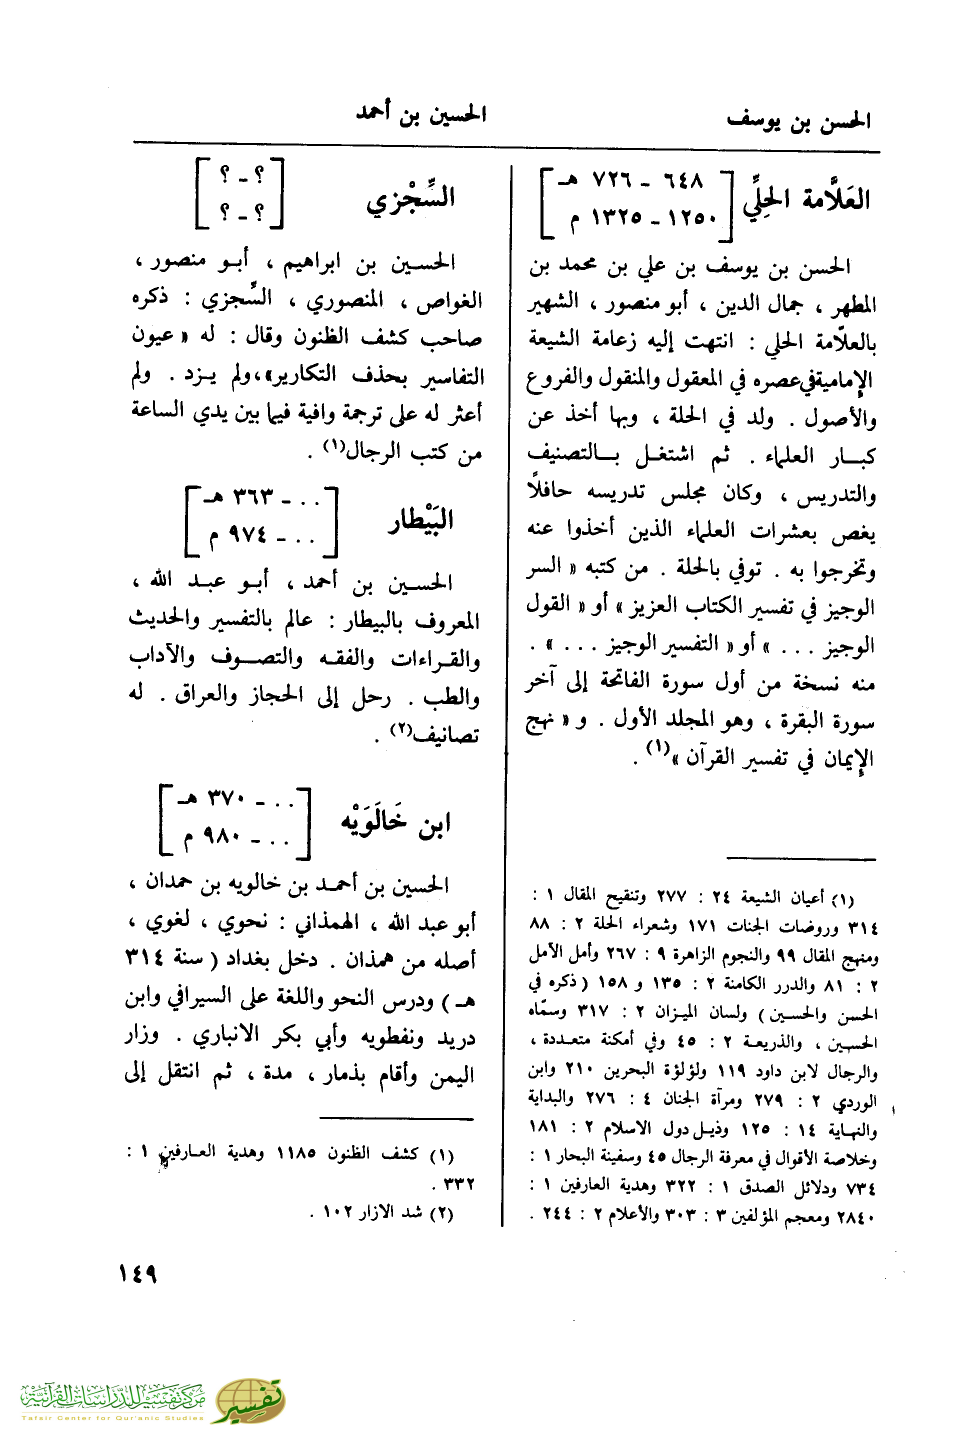 الحسن بن يوسف
الحسين بن أحمد
العَلَّامة الحِلِّي
٦٤٨ - ٧٢٦ هـ
١٢٥٠ - ١٣٢٥ م
الحسن بن يوسف بن علي بن محمد بن
المطهر ، جمال الدين ، أبو منصور ، الشهير
بالعلّامة الحلي : انتهت إليه زعامة الشيعة
الإمامية في عصره في المعقول والمنقول والفروع
والأصول . ولد في الحلة ، وبها أخذ عن
كبار العلماء . ثم اشتغل بالتصنيف
والتدريس ، وكان مجلس تدريسه حافلاً
يغص بعشرات العلماء الذين أخذوا عنه
وتخرجوا به . توفي بالحلة . من كتبه « السر
الوجيز في تفسير الكتاب العزيز » أو « القول
الوجيز ... » أو « التفسير الوجيز ... » .
منه نسخة من أول سورة الفاتحة إلى آخر
سورة البقرة ، وهو المجلد الأول . و « نهج
الإيمان في تفسير القرآن »(١) .
(١) أعيان الشيعة ٢٤ : ٢٧٧ وتنقيح المقال ١ :
٣١٤ وروضات الجنات ١٧١ وشعراء الحلة ٢ : ٨٨
ومنهج المقال ٩٩ والنجوم الزاهرة ٩ : ٢٦٧ وأمل الآمل
٢ : ٨١ والدرر الكامنة ٢ : ١٣٥ و ١٥٨ ( ذكره في
الحسن والحسين ) ولسان الميزان ٢ : ٣١٧ وسمّاه
الحسين ، والذريعة ٢ : ٤٥ وفي أمكنة متعددة ،
والرجال لابن داود ١١٩ ولؤلؤة البحرين ٢١٠ وابن
الوردي ٢ : ٢٧٩ ومرآة الجنان ٤ : ٢٧٦ والبداية
والنهاية ١٤ : ١٢٥ وذيل دول الاسلام ٢ : ١٨١
وخلاصة الأقوال في معرفة الرجال ٤٥ وسفينة البحار ١ :
٧٣٤ ودلائل الصدق ١ : ٣٢٢ وهدية العارفين ١ :
٢٨٤٠ ومعجم المؤلفين ٣ : ٣٠٣ والأعلام ٢ : ٢٤٤ .
السِّجْزي
؟ - ؟
؟ - ؟
الحسين بن ابراهيم ، أبو منصور ،
الغواص ، المنصوري ، السِّجزي : ذكره
صاحب كشف الظنون وقال : له « عيون
التفاسير بحذف التكارير»، ولم يزد . ولم
أعثر له على ترجمة وافية فيما بين يدي الساعة
من كتب الرجال(١) .
البَيْطار
... - ٣٦٣ هـ
... - ٩٧٤ م
الحسين بن أحمد ، أبو عبد الله ،
المعروف بالبيطار : عالم بالتفسير والحديث
والقراءات والفقه والتصوف والآداب
والطب . رحل إلى الحجاز والعراق . له
تصانيف(٢) .
ابن خَالَوَيْه
... - ٣٧٠ هـ
... - ٩٨٠ م
الحسين بن أحمد بن خالويه بن حمدان ،
أبو عبد الله ، الهمذاني : نحوي ، لغوي ،
أصله من همذان . دخل بغداد ( سنة ٣١٤
هـ ) ودرس النحو واللغة على السيرافي وابن
دريد ونفطويه وأبي بكر الانباري . وزار
اليمن وأقام بذمار ، مدة ، ثم انتقل إلى
(١) كشف الظنون ١١٨٥ وهدية العارفين ١ :
٣٣٢ .
(٢) شد الازار ١٠٢ .
١٤٩
مركز تفسير للدراسات القرآنية
Tafsir Center for Qur'anic Studies
تفسير